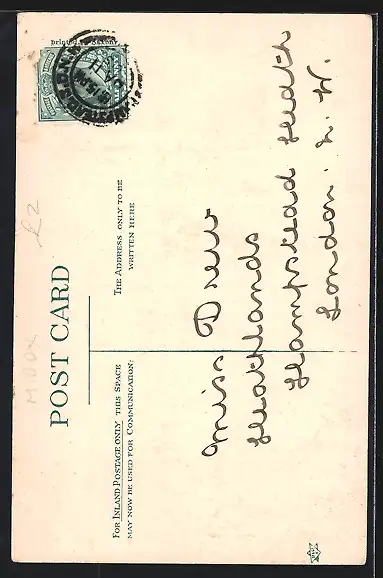 Printed in Saxony
POST CARD
FOR INLAND POSTAGE ONLY THIS SPACE
MAY NOW BE USED FOR COMMUNICATION:
THE ADDRESS ONLY TO BE
WRITTEN HERE
Miss Drew
Heathlands
Hampstead Heath
London. N. W.
£2